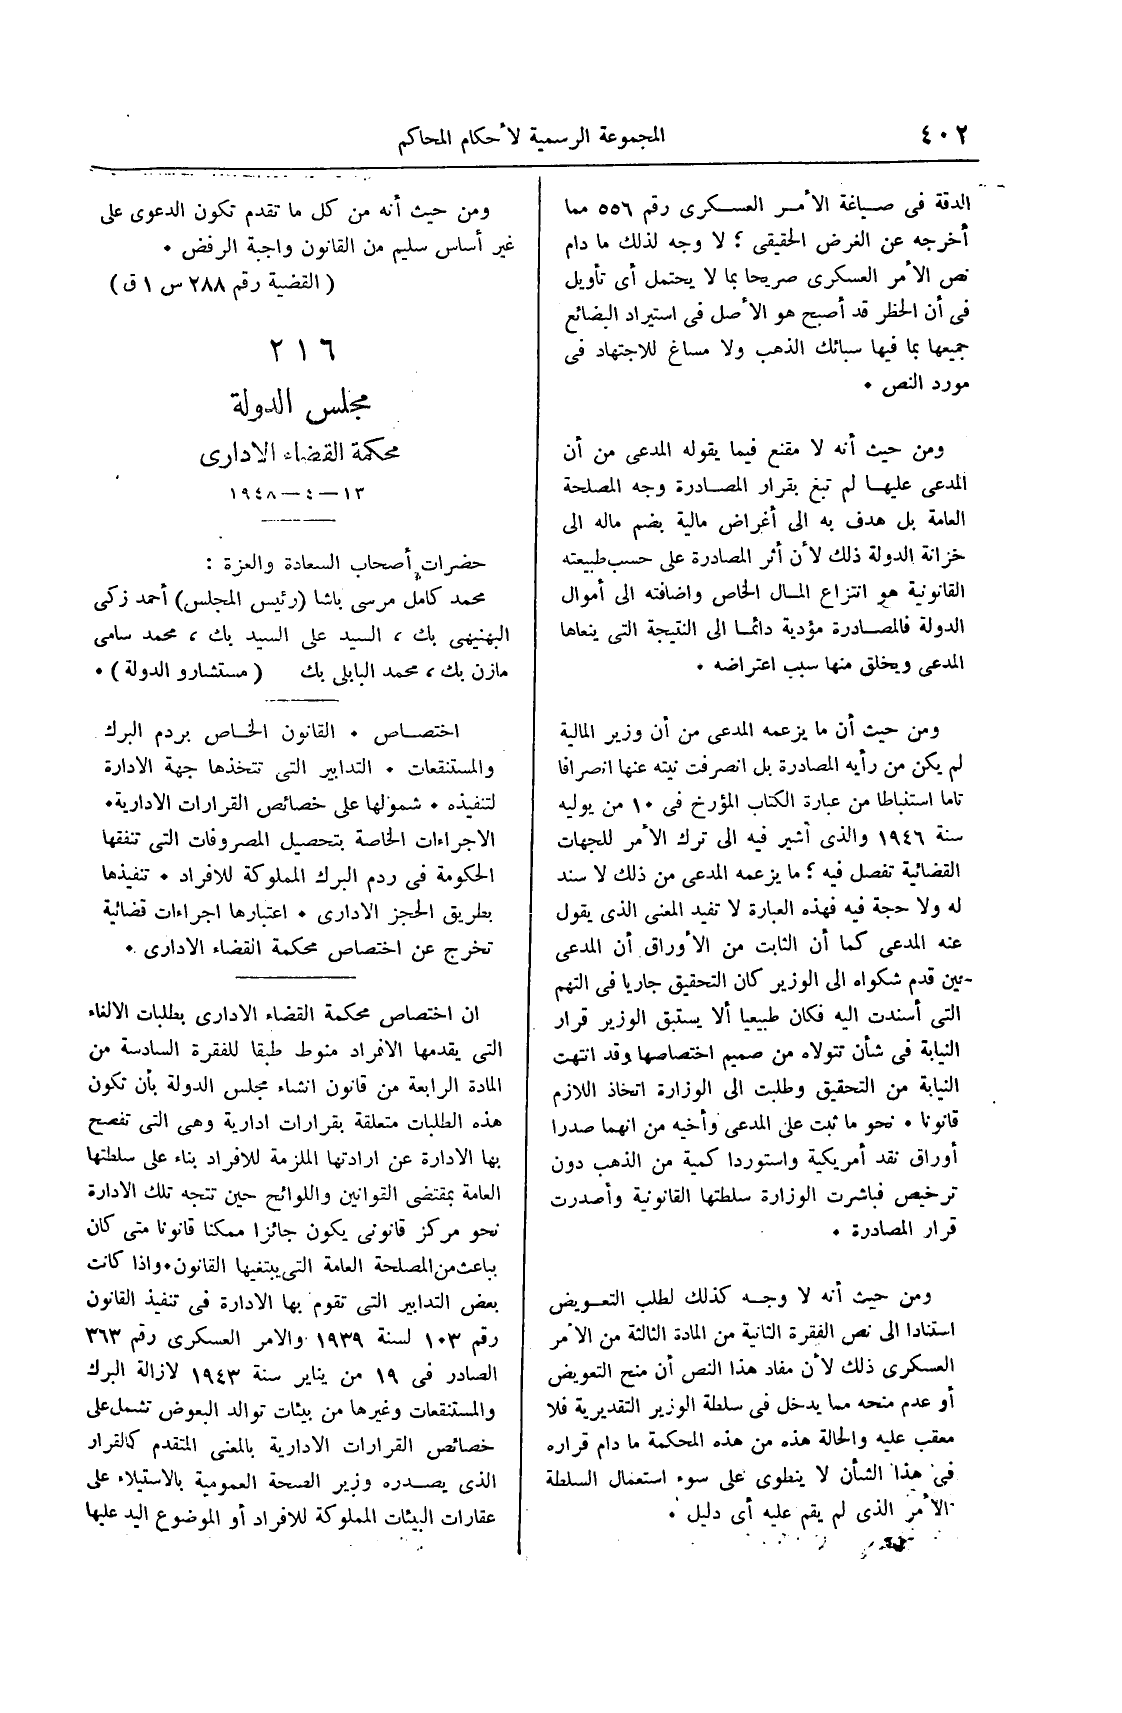 ٤٠٢
المجموعة الرسمية لأحكام المحاكم
الدقة فى صياغة الأمر العسكرى رقم ٥٥٦ مما
أخرجه عن الغرض الحقيقى ؛ لا وجه لذلك ما دام
نص الأمر العسكرى صريحا بما لا يحتمل أى تأويل
فى أن الحظر قد أصبح هو الأصل فى استيراد البضائع
جميعها بما فيها سبائك الذهب ولا مساغ للاجتهاد فى
مورد النص •
ومن حيث أنه لا مقنع فيما يقوله المدعى من أن
المدعى عليها لم تبغ بقرار المصادرة وجه المصلحة
العامة بل هدف به الى أغراض مالية بضم ماله الى
خزانة الدولة ذلك لأن أثر المصادرة على حسب طبيعته
القانونية هو انتزاع المال الخاص واضافته الى أموال
الدولة فالمصادرة مؤدية دائما الى النتيجة التى ينعاها
المدعى ويخلق منها سبب اعتراضه •
ومن حيث أن ما يزعمه المدعى من أن وزير المالية
لم يكن من رأيه المصادرة بل انصرفت نيته عنها انصرافا
تاما استنباطا من عبارة الكتاب المؤرخ فى ١٠ من يوليه
سنة ١٩٤٦ والذى أشير فيه الى ترك الأمر للجهات
القضائية تفصل فيه ؛ ما يزعمه المدعى من ذلك لا سند
له ولا حجة فيه فهذه العبارة لا تفيد المعنى الذى يقول
عنه المدعى كما أن الثابت من الأوراق أن المدعى
حين قدم شكواه الى الوزير كان التحقيق جاريا فى التهم
التى أسندت اليه فكان طبيعيا ألا يستبق الوزير قرار
النيابة فى شأن تتولاه من صميم اختصاصها وقد انتهت
النيابة من التحقيق وطلبت الى الوزارة اتخاذ اللازم
قانونا • نحو ما ثبت على المدعى وأخيه من انهما صدرا
أوراق نقد أمريكية واستوردا كمية من الذهب دون
ترخيص فباشرت الوزارة سلطتها القانونية وأصدرت
قرار المصادرة •
ومن حيث أنه لا وجه كذلك لطلب التعويض
استنادا الى نص الفقرة الثانية من المادة الثالثة من الأمر
العسكرى ذلك لأن مفاد هذا النص أن منح التعويض
أو عدم منحه مما يدخل فى سلطة الوزير التقديرية فلا
معقب عليه والحالة هذه من هذه المحكمة ما دام قراره
فى هذا الشأن لا ينطوى على سوء استعمال السلطة
الأمر الذى لم يقم عليه أى دليل •
ومن حيث أنه من كل ما تقدم تكون الدعوى على
غير أساس سليم من القانون واجبة الرفض •
( القضية رقم ٢٨٨ س ١ ق )
٢١٦
مجلس الدولة
محكمة القضاء الادارى
١٣ — ٤ — ١٩٤٨
حضرات أصحاب السعادة والعزة :
محمد كامل مرسى باشا (رئيس المجلس) أحمد زكى
البهنيهى بك ، السيد على السيد بك ، محمد سامى
مازن بك ، محمد البابلى بك ( مستشارو الدولة ) •
اختصاص • القانون الخاص بردم البرك
والمستنقعات • التدابير التى تتخذها جهة الادارة
لتنفيذه • شمولها على خصائص القرارات الادارية •
الاجراءات الخاصة بتحصيل المصروفات التى تنفقها
الحكومة فى ردم البرك المملوكة للافراد • تنفيذها
بطريق الحجز الادارى • اعتبارها اجراءات قضائية
تخرج عن اختصاص محكمة القضاء الادارى •
ان اختصاص محكمة القضاء الادارى بطلبات الالغاء
التى يقدمها الافراد منوط طبقا للفقرة السادسة من
المادة الرابعة من قانون انشاء مجلس الدولة بأن تكون
هذه الطلبات متعلقة بقرارات ادارية وهى التى تفصح
بها الادارة عن ارادتها الملزمة للافراد بناء على سلطتها
العامة بمقتضى القوانين واللوائح حين تتجه تلك الادارة
نحو مركز قانونى يكون جائزا ممكنا قانونا متى كان
بباعث من المصلحة العامة التى يبتغيها القانون • واذا كانت
بعض التدابير التى تقوم بها الادارة فى تنفيذ القانون
رقم ١٠٣ لسنة ١٩٣٩ والامر العسكرى رقم ٣٦٣
الصادر فى ١٩ من يناير سنة ١٩٤٣ لازالة البرك
والمستنقعات وغيرها من بيئات توالد البعوض تشمل على
خصائص القرارات الادارية بالمعنى المتقدم كالقرار
الذى يصدره وزير الصحة العمومية بالاستيلاء على
عقارات البيئات المملوكة للافراد أو الموضوع اليد عليها